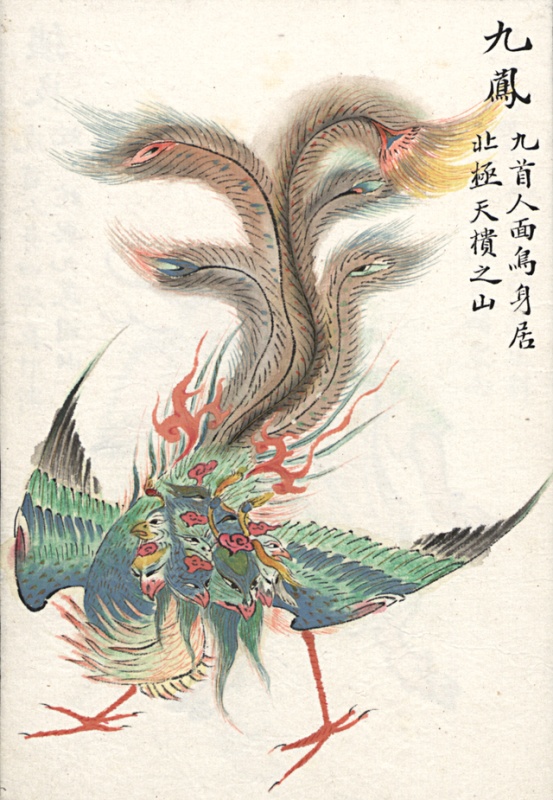 九鳳
九首人面鳥身居
北極天樻之山